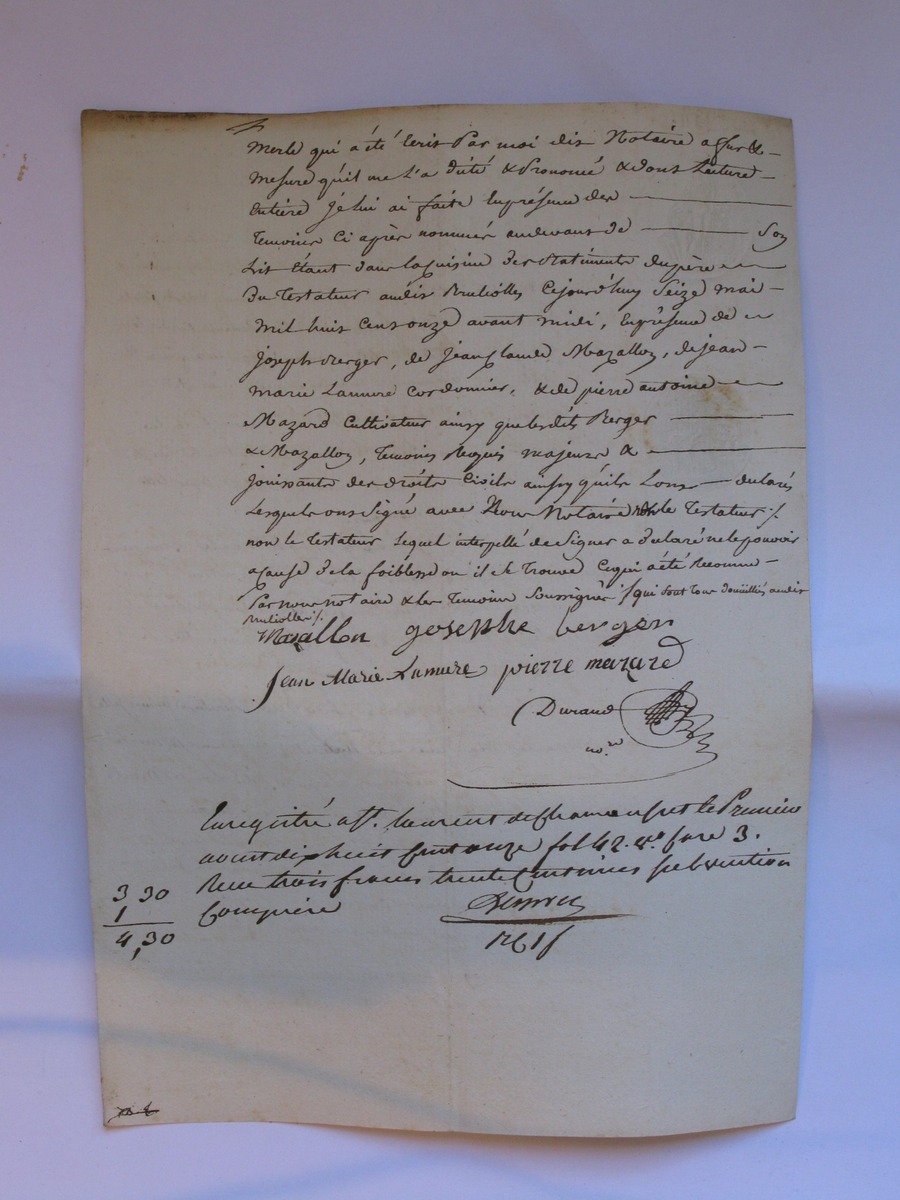 Merle qui a été écrit Par moi dit Notaire a fur &
mesure qu'il me l'a dicté & Prononcé & dont Lecture
Entière Je lui ai faite En présence des
Temoins Ci après nommés audevant de Son
Lit étant dans la Cuisine des Batiments du père
Du Testateur audit Brulliolles Cejourd'huy Seize mai
Mil huit Cent onze avant midi, En présence de
Joseph Berger, de Jean Claude Mazallon, de jean
marie Lamure Cordonnier, & de pierre antoine
Mazard Cultivateur ainsy que lesdits Berger
& Mazallon, Temoins Requis majeurs &
jouissants des droits Civils ainsy qu'ils L'ont déclarés
Lesquels ont Signé avec Nous Notaire le Testateur /.
non le Testateur Lequel interpellé de Signer a déclaré ne le pouvoir
a cause de la foiblesse ou il se Trouve Ce qui a été Reconnu
Par nous notaire & les Temoins Soussignés /. qui sont tous domiciliés audit
Brulliolles /.
Mazallon josephe berger
Jean Marie Lamure pierre mazard
Durand
no.re
Enregistré a St. Laurent de Chamousset le Premier
aout dix huit Cent onze fol 42. v° Case 3.
Reçu trois francs trente Centimes subvention
Comprise
3 30
1
4,30